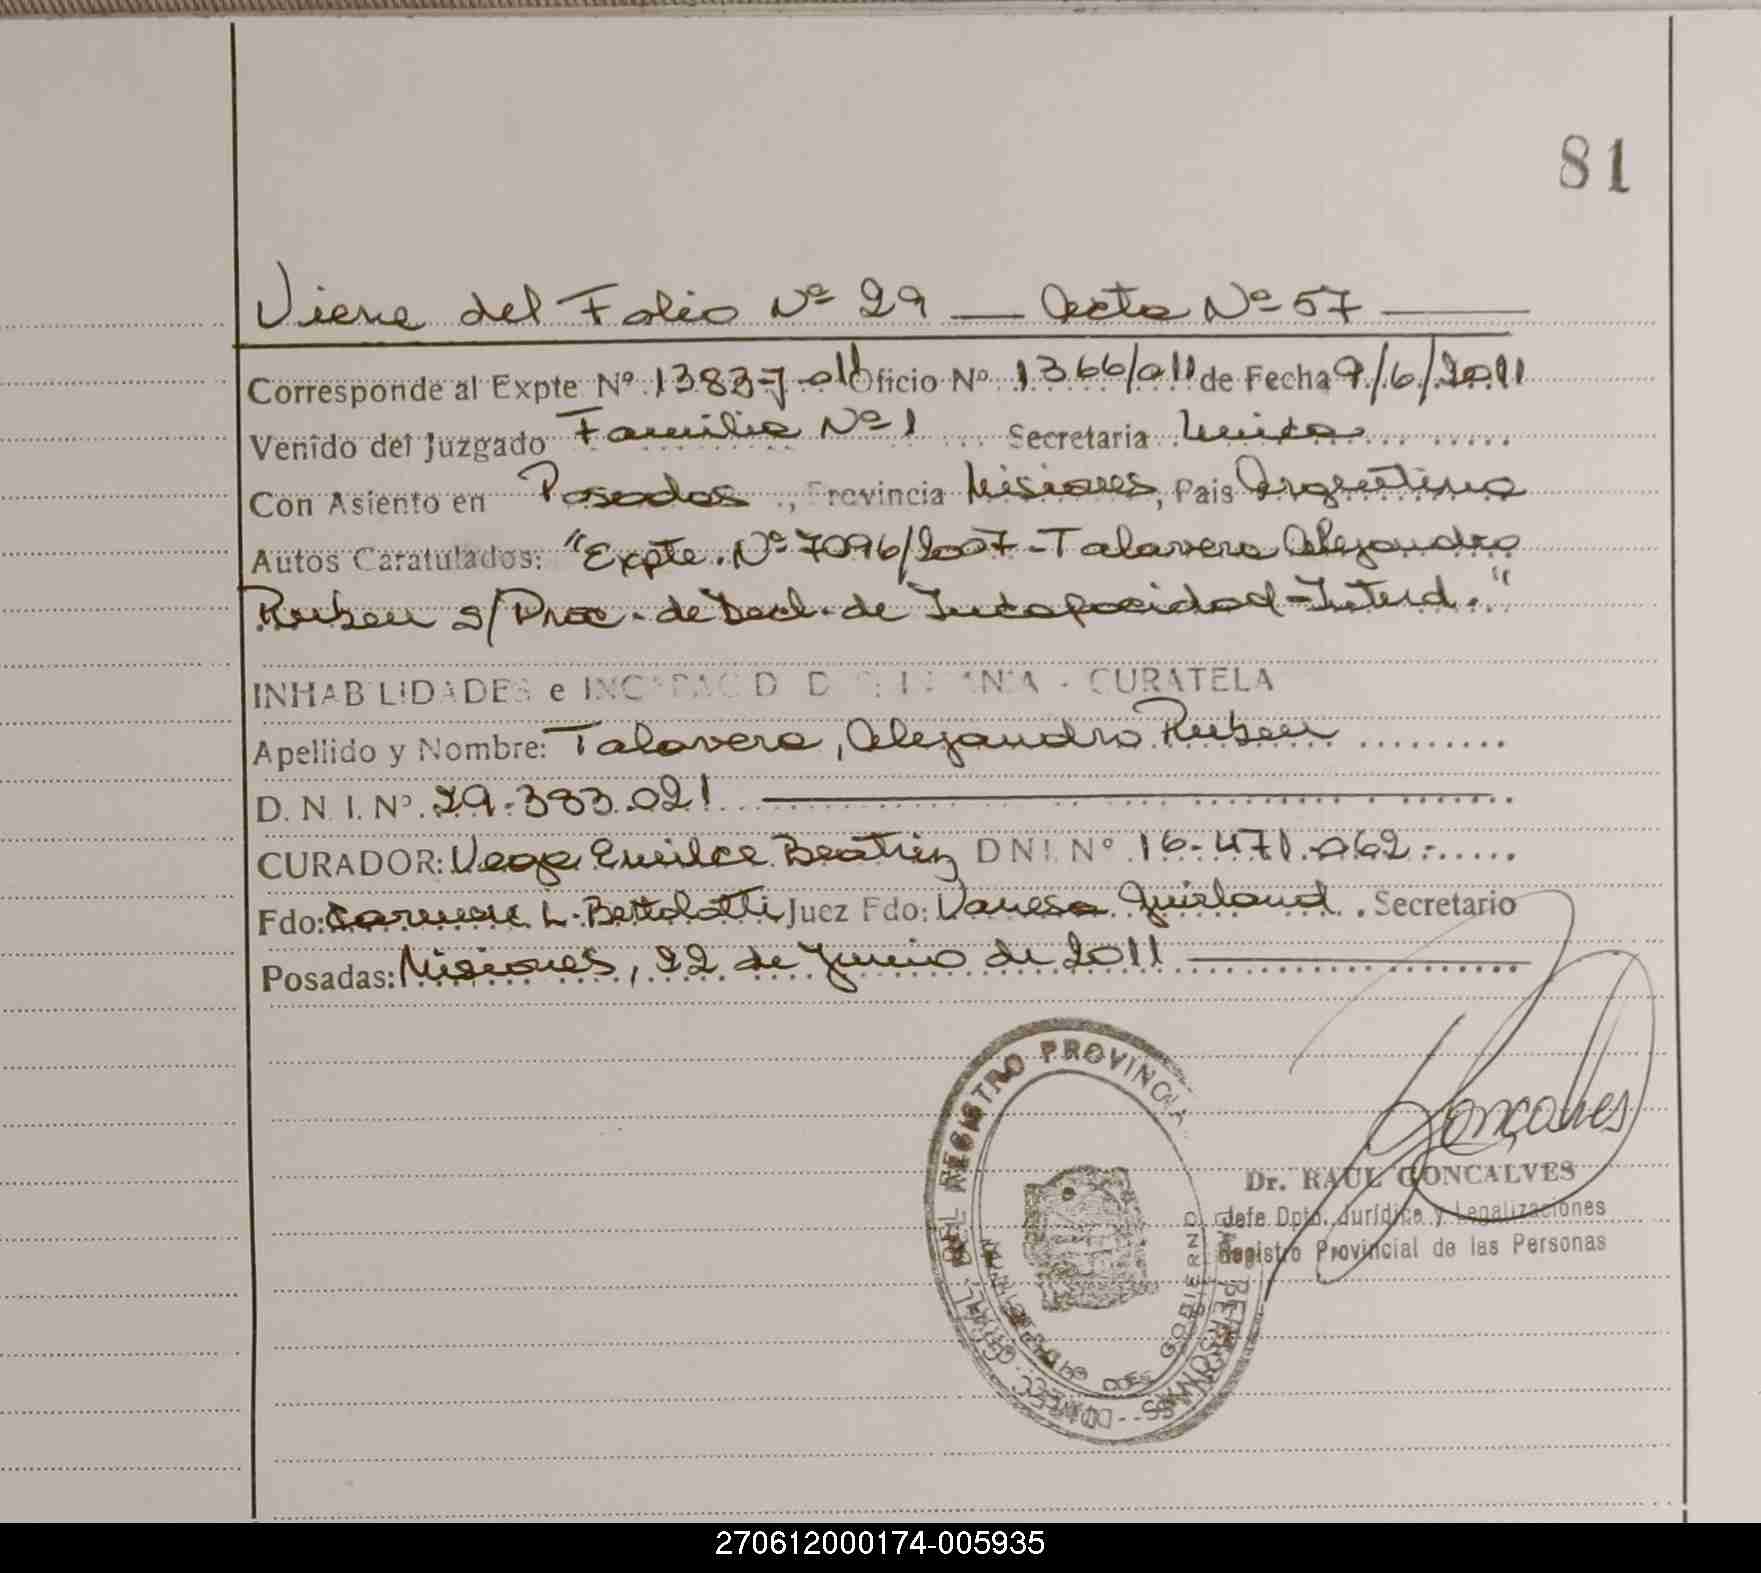 81
Viene del Folio Nº 29 — Acta Nº 57 —
Corresponde al Expte Nº 13837-011 Oficio Nº 1366/011 de Fecha 9/6/2011
Venido del Juzgado Familia Nº 1 Secretaria Unica
Con Asiento en Posadas, Provincia Misiones, Pais Argentina
Autos Caratulados: "Expte. Nº 7096/2007 - Talavera Alejandro
Ruben s/ Proc. de Decl. de Incapacidad - Interd."
INHABILIDADES e CURATELA
Apellido y Nombre: Talavera, Alejandro Ruben
D. N. I. Nº 29.383.021
CURADOR: Vega Beatriz DNI. Nº 16.471.062
Fdo: Carmen L. Bertolotti Juez Fdo: Vanesa Secretario
Posadas: Misiones, 22 de Junio de 2011
DEL REGISTRO PROVINCIAL
GOBIERNO
Goncalves
Dr. RAUL GONCALVES
Jefe Dpto. Jurídico y Legalizaciones
Registro Provincial de las Personas
270612000174-005935